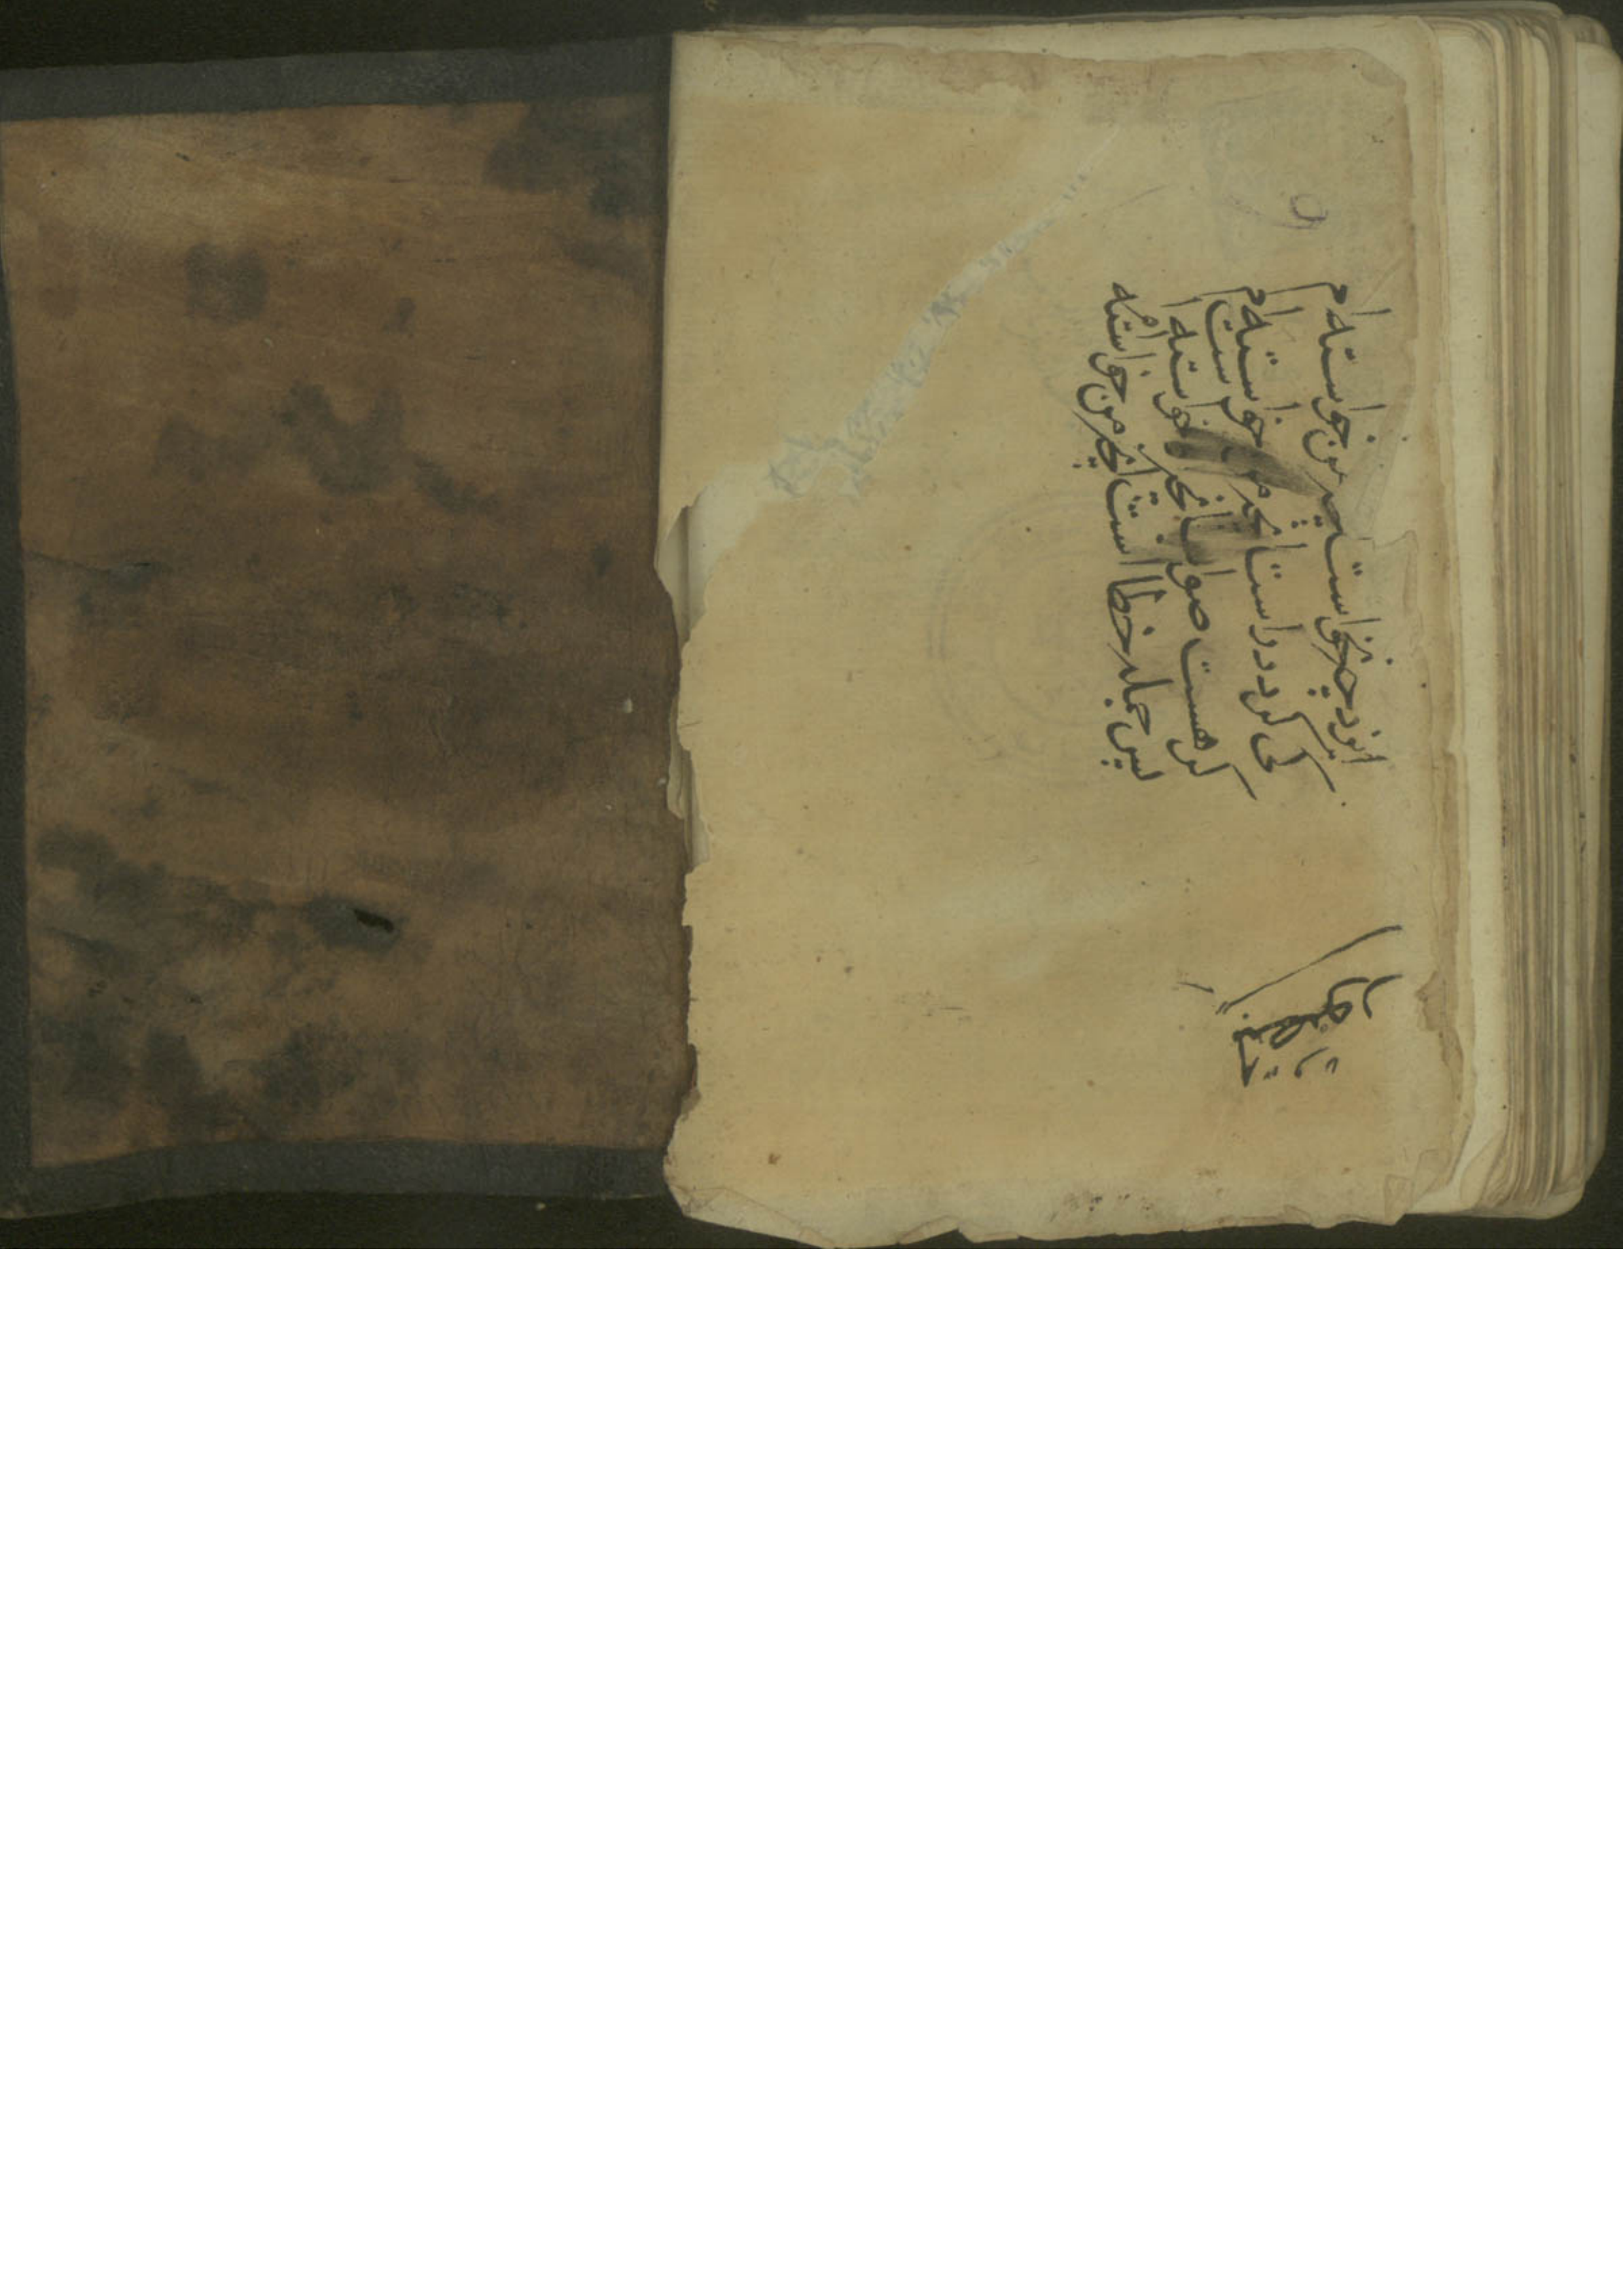 ایزد چو نخواست انچه من خواسته ام
کی کردد راست انچه من خواسته ام
کر هست صواب انچه خواسته است
پس جمله خطا است انچه من خواسته ام